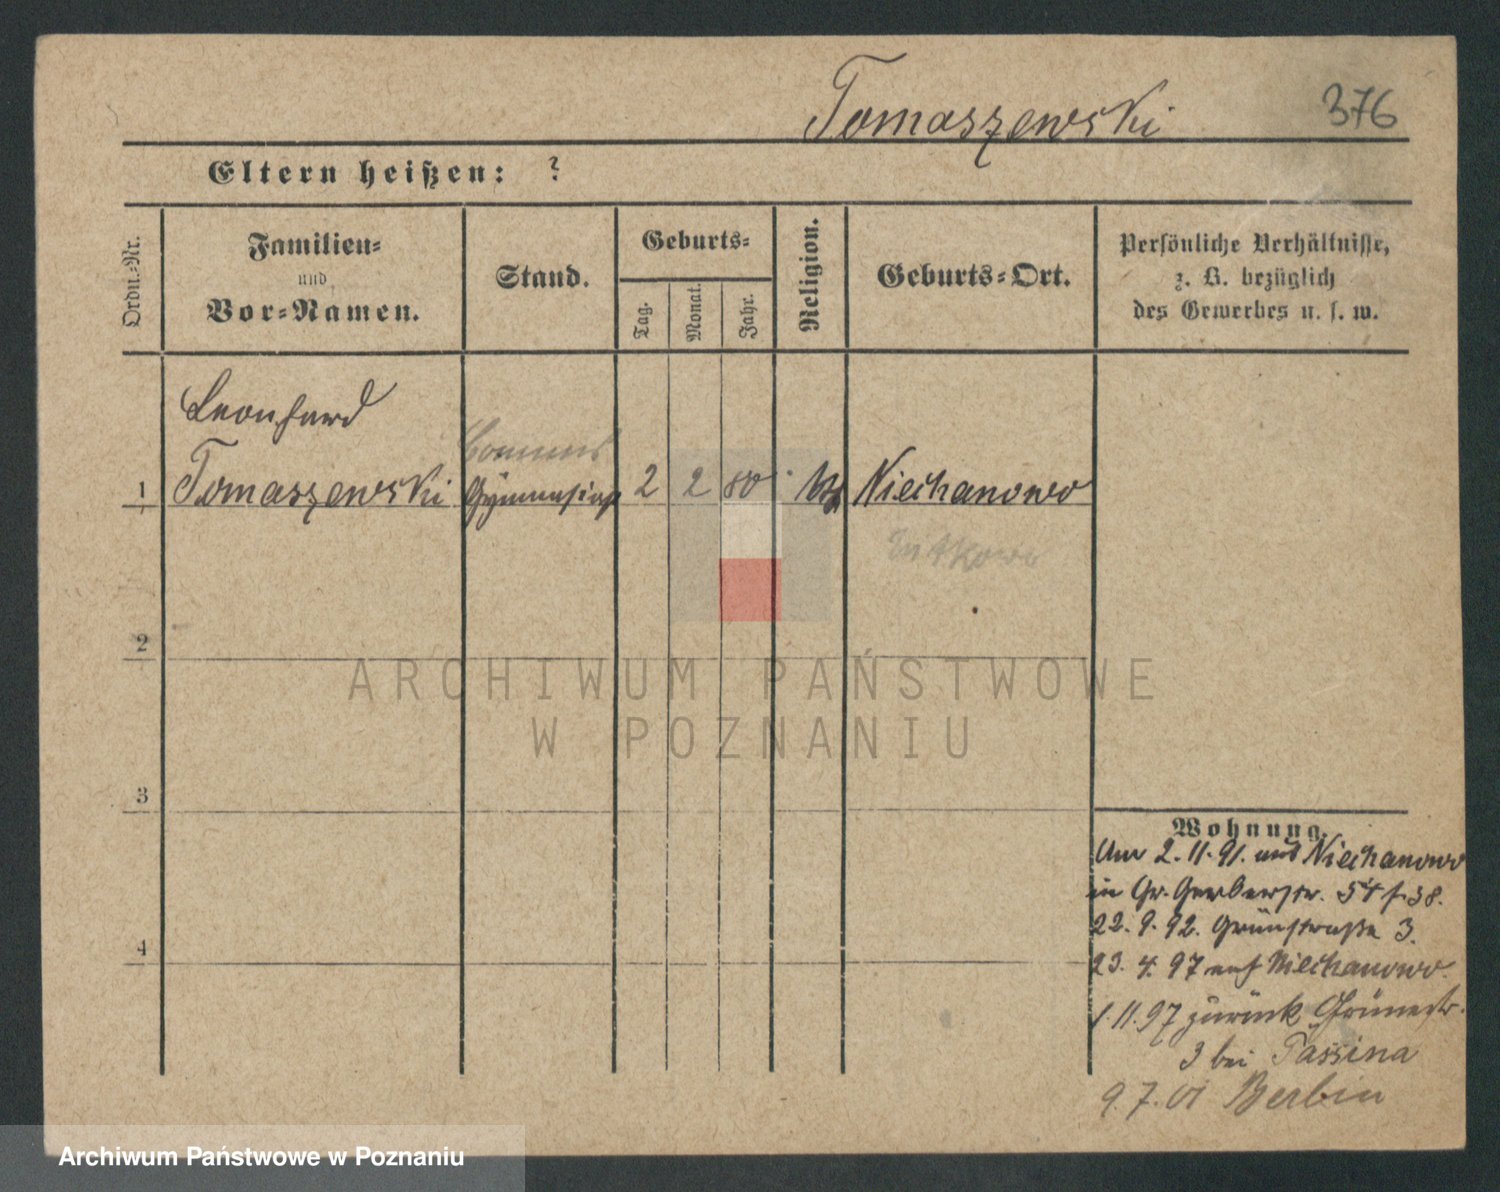 Tomaszewski
376
Eltern heißen: ?
Ordn.-Nr.
Familien-
und
Vor-Namen.
Stand.
Geburts-
Tag.
Monat.
Jahr.
Religion.
Geburts-Ort.
Persönliche Verhältnisse,
z. B. bezüglich
des Gewerbes u. s. w.
Leonhard
Commis
1 Tomaszewski Gymnasiast 2 2 80 Niechanowo
Witkowo
2
3
4
ARCHIWUM PAŃSTWOWE
W POZNANIU
Wohnung.
Am 2.11.91. aus Niechanowo
in Gr. Gerberstr. 54 f. 38.
22. 9. 92. Grünstraße 3.
23. 4. 97 auf Niechanowo.
1.11.97 zurück Grünestr.
3 bei Tassina
9.7.01 Berlin
Archiwum Państwowe w Poznaniu